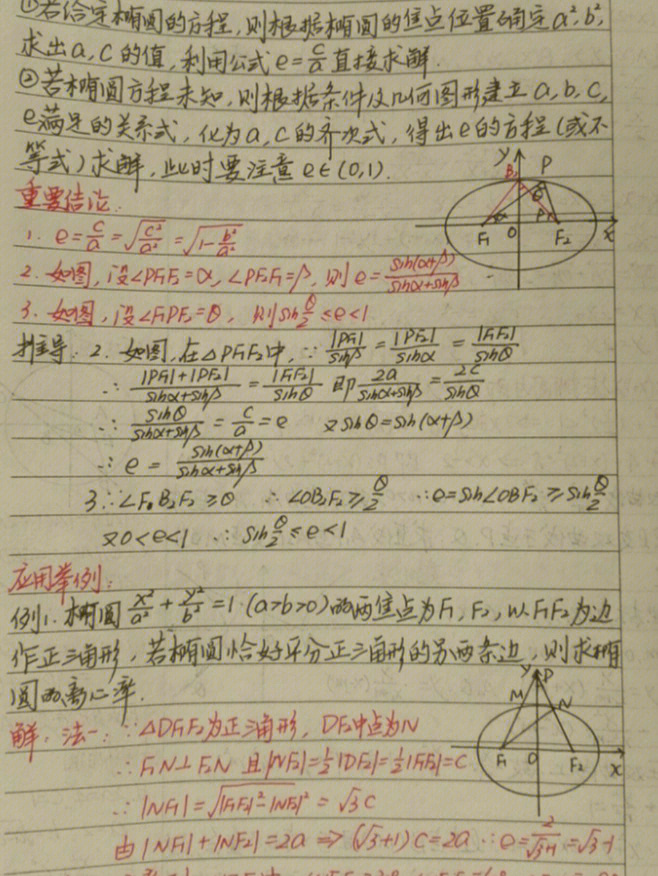 ①若给定椭圆的方程,则根据椭圆的焦点位置确定a²,b²,
求出a,c的值,利用公式e=c/a直接求解.
②若椭圆方程未知,则根据条件及几何图形建立a,b,c,
e满足的关系式,化为a,c的齐次式,得出e的方程(或不
等式)求解,此时要注意e∈(0,1).
y
B
P
θ
α
β
F₁
O
F₂
x
重要结论:
1. e=c/a=√(c²/a²)=√(1-b²/a²)
2. 如图,设∠PF₁F₂=α,∠PF₂F₁=β,则e=sin(α+β)/(sinα+sinβ)
3. 如图,设∠F₁PF₂=θ,则sin θ/2≤e<1
推导:2. 如图,在△PF₁F₂中,∵|PF₁|/sinβ=|PF₂|/sinα=|F₁F₂|/sinθ
∴(|PF₁|+|PF₂|)/(sinα+sinβ)=|F₁F₂|/sinθ 即2a/(sinα+sinβ)=2c/sinθ
∴sinθ/(sinα+sinβ)=c/a=e 又sinθ=sin(α+β)
∴e=sin(α+β)/(sinα+sinβ)
3 ∵∠F₁B₂F₂≥θ ∴∠OB₂F₂≥θ/2 ∴e=sin∠OBF₂≥sin θ/2
又0<e<1 ∴sin θ/2≤e<1
应用举例:
例1. 椭圆x²/a²+y²/b²=1(a>b>0)的两焦点为F₁,F₂,以F₁F₂为边
作正三角形,若椭圆恰好平分正三角形的另两条边,则求椭
圆的离心率.
y
P
M
N
F₁
O
F₂
x
解:法一:∵△DF₁F₂为正三角形,DF₂中点为N
∴F₁N⊥F₂N 且|NF₂|=½|DF₂|=½|F₁F₂|=c
∴|NF₁|=√(|F₁F₂|²-|NF₂|²)=√3c
由|NF₁|+|NF₂|=2a⇒(√3+1)c=2a ∴e=2/(√3+1)=√3-1